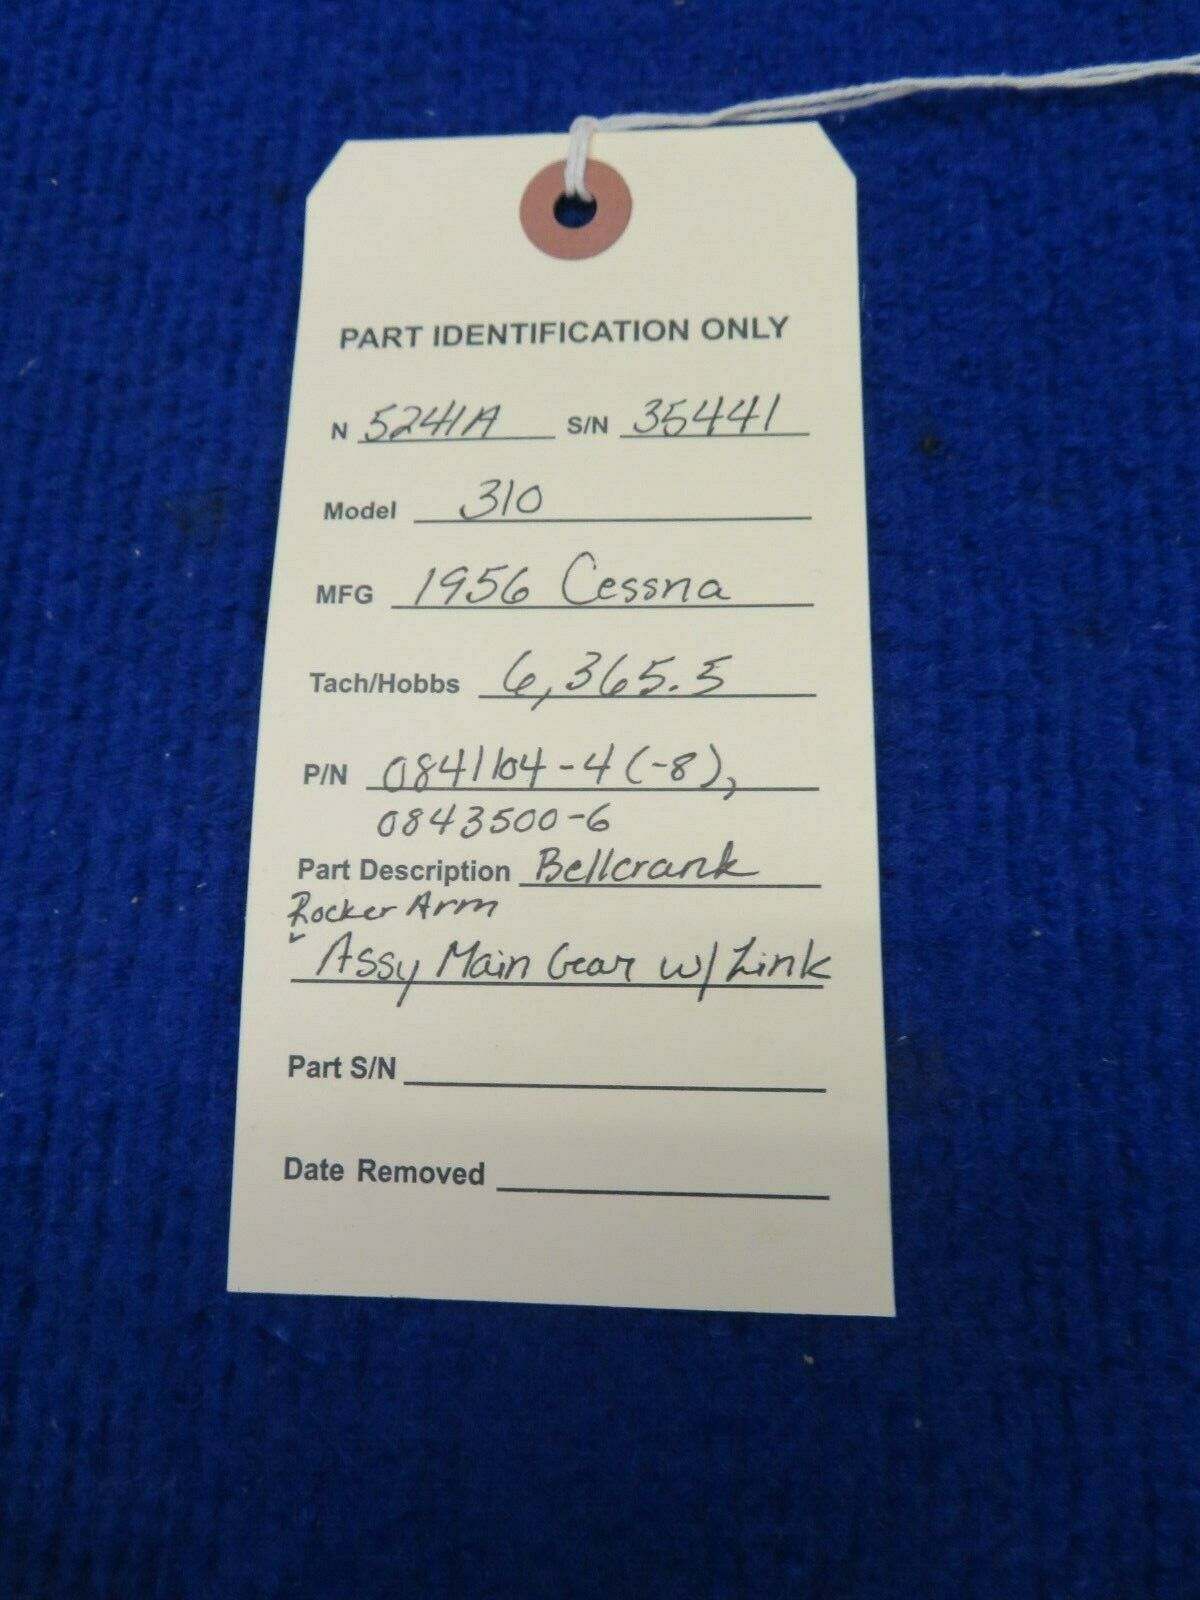 PART IDENTIFICATION ONLY
N 5241A S/N 35441
Model 310
MFG 1956 Cessna
Tach/Hobbs 6,365.5
P/N 0841104-4 (-8),
0843500-6
Part Description Bellcrank
Rocker Arm
Assy Main Gear w/ Link
Part S/N
Date Removed